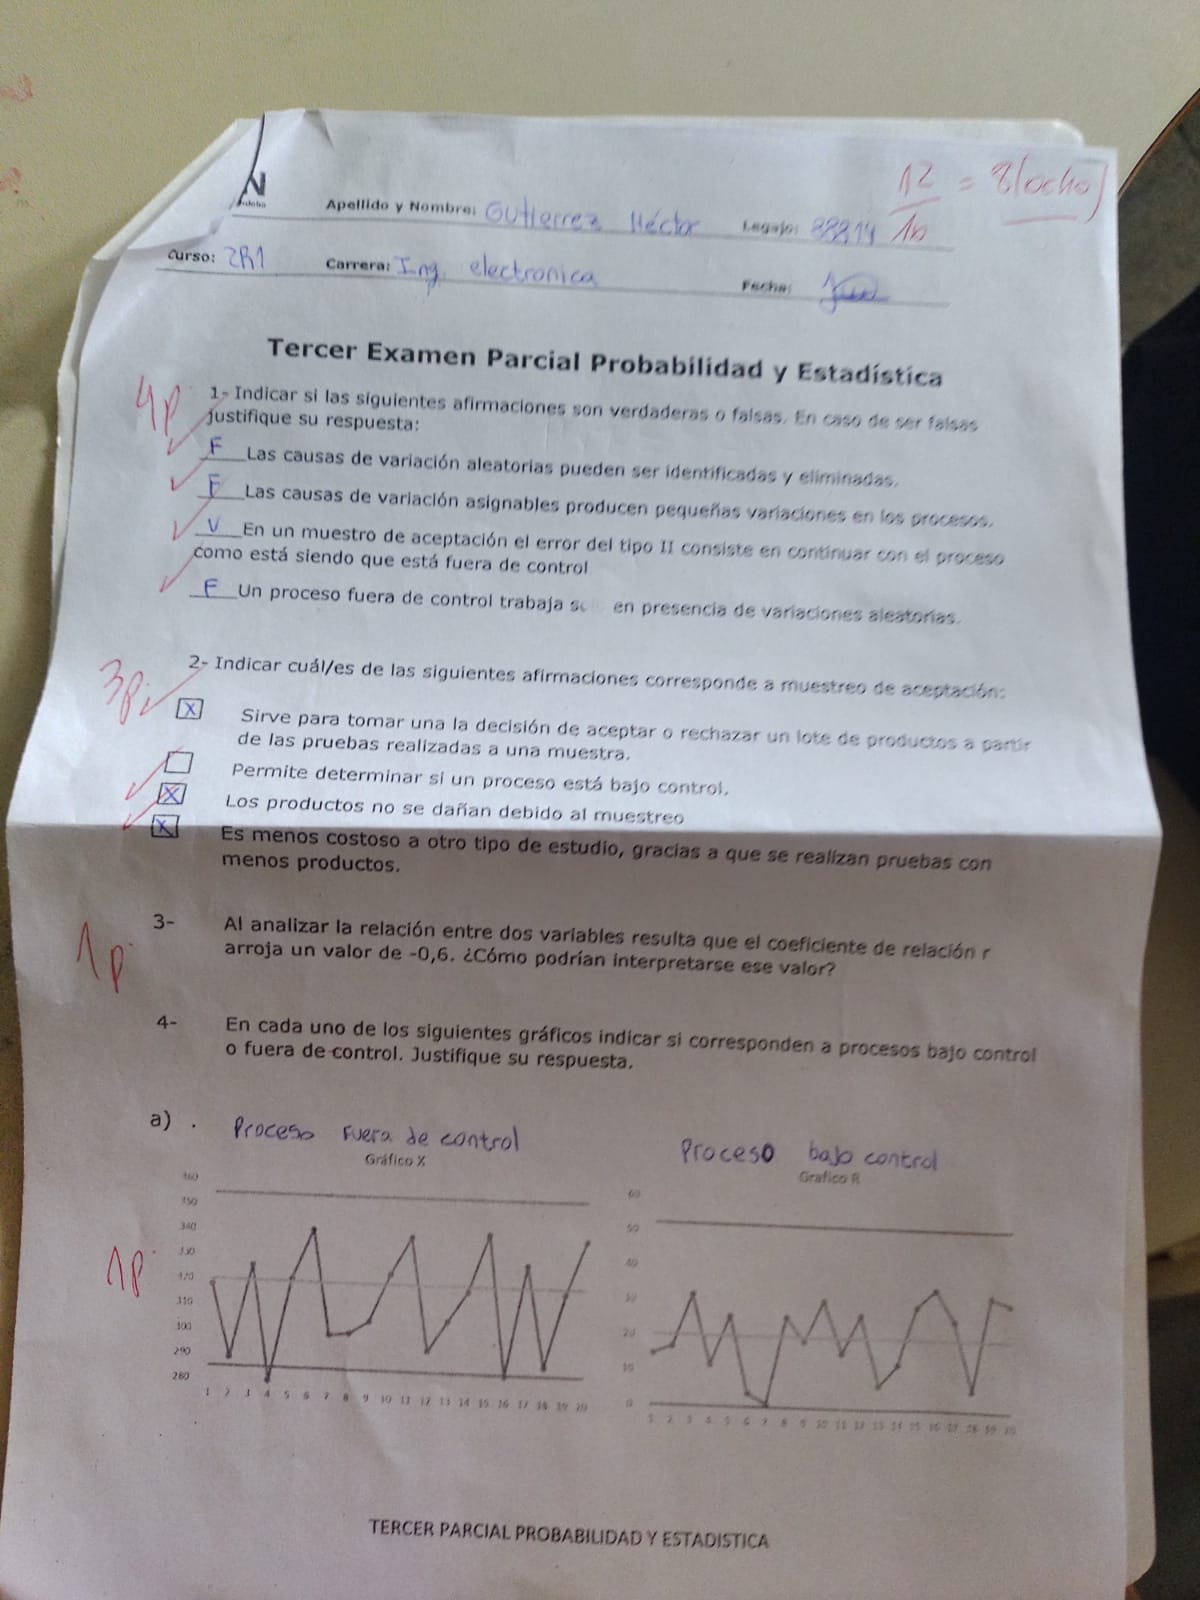 Apellido y Nombre: Gutierrez Héctor Legajo: 12 = 8(ocho)
Curso: 2R1 Carrera: Ing. electronica Fecha:
Tercer Examen Parcial Probabilidad y Estadística
4p
1- Indicar si las siguientes afirmaciones son verdaderas o falsas. En caso de ser falsas
justifique su respuesta:
F Las causas de variación aleatorias pueden ser identificadas y eliminadas.
F Las causas de variación asignables producen pequeñas variaciones en los procesos.
V En un muestro de aceptación el error del tipo II consiste en continuar con el proceso
como está siendo que está fuera de control
F Un proceso fuera de control trabaja en presencia de variaciones aleatorias.
3p.
2- Indicar cuál/es de las siguientes afirmaciones corresponde a muestreo de aceptación:
X Sirve para tomar una la decisión de aceptar o rechazar un lote de productos a partir
de las pruebas realizadas a una muestra.
Permite determinar si un proceso está bajo control.
X Los productos no se dañan debido al muestreo
X Es menos costoso a otro tipo de estudio, gracias a que se realizan pruebas con
menos productos.
1p.
3- Al analizar la relación entre dos variables resulta que el coeficiente de relación r
arroja un valor de -0,6. ¿Cómo podrían interpretarse ese valor?
4- En cada uno de los siguientes gráficos indicar si corresponden a procesos bajo control
o fuera de control. Justifique su respuesta.
a) . Proceso Fuera de control
Gráfico X
360
350
340
330
320
310
300
290
280
1 2 3 4 5 6 7 8 9 10 11 12 13 14 15 16 17 18 19 20
1p.
Proceso bajo control
Grafico R
60
50
40
30
20
10
0
1 2 3 4 5 6 7 8 9 10 11 12 13 14 15 16 17 18 19 20
TERCER PARCIAL PROBABILIDAD Y ESTADISTICA